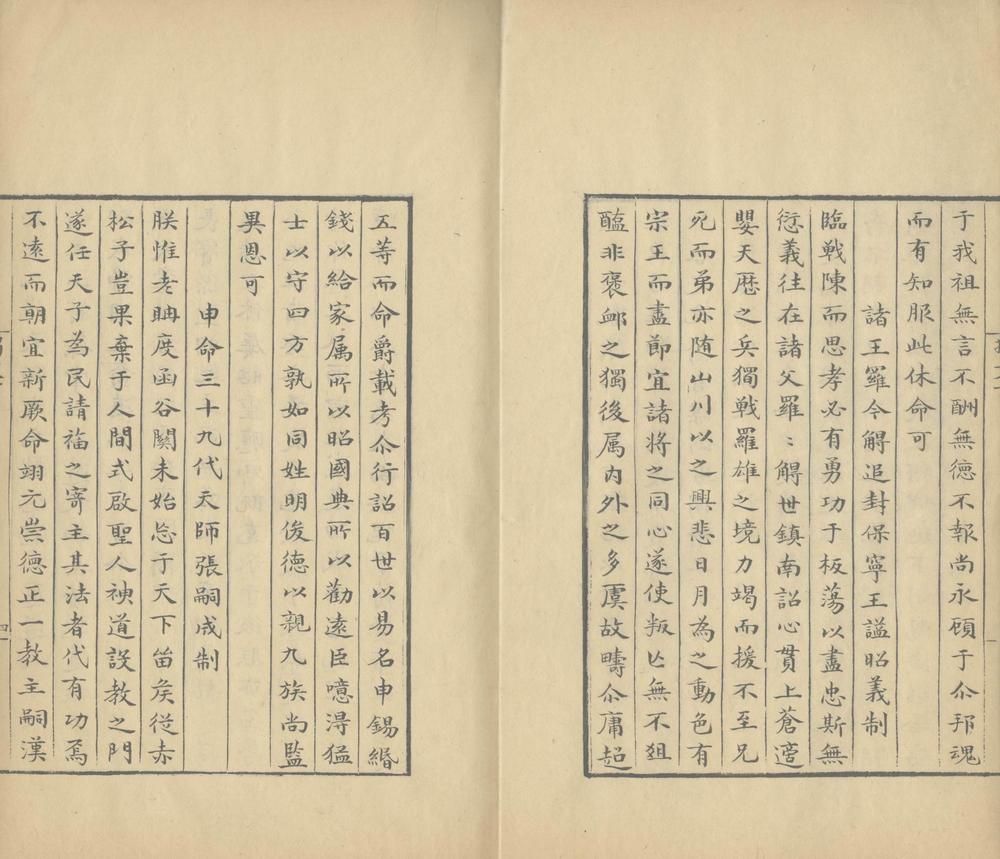 于我祖無言不酬無德不報尚永顧于尒邦魂
而有知服此休命可
諸王羅令觧追封保寧王諡昭義制
臨戰陳而思孝必有勇功于板蕩以盡忠斯無
愆義徃在諸父羅〻觧世鎮南詔心貫上蒼適
嬰天歷之兵獨戰羅雄之境力竭而援不至兄
死而弟亦随山川以之興悲日月為之動色有
宗王而盡節宜諸將之同心遂使叛亾無不殂
醢非褒邺之獨後属内外之多虞故疇尒庸超
五等而命爵載考尒行詔百世以易名申錫緡
錢以給家属所以昭國典所以勸遠臣噫淂猛
士以守四方孰如同姓明俊德以親九族尚監
異恩可
申命三十九代天師張嗣成制
朕惟老聃度函谷關未始忘于天下留矦従赤
松子豈果棄于人間式啟聖人神道設教之門
遂任天子為民請福之寄主其法者代有功焉
不遠而朝宜新厥命翊元崇德正一教主嗣漢